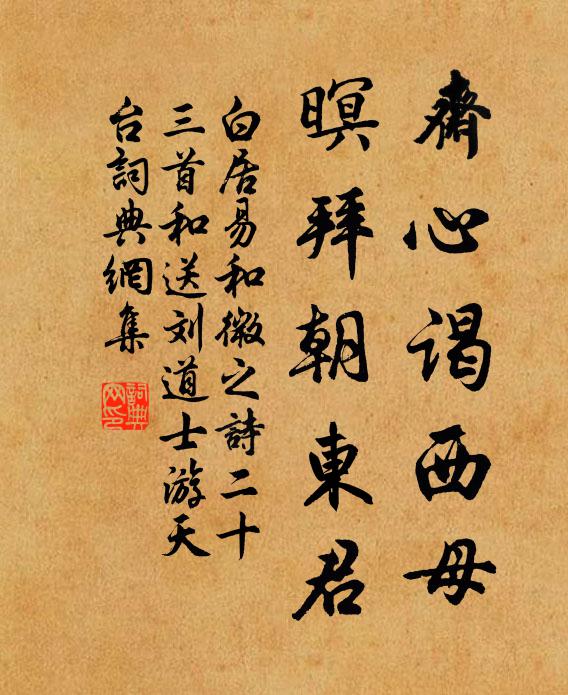 齋心謁西母
暝拜朝東君
白居易和微之詩二十
三首和送刘道士游天
台詞典網集
詞典
网印